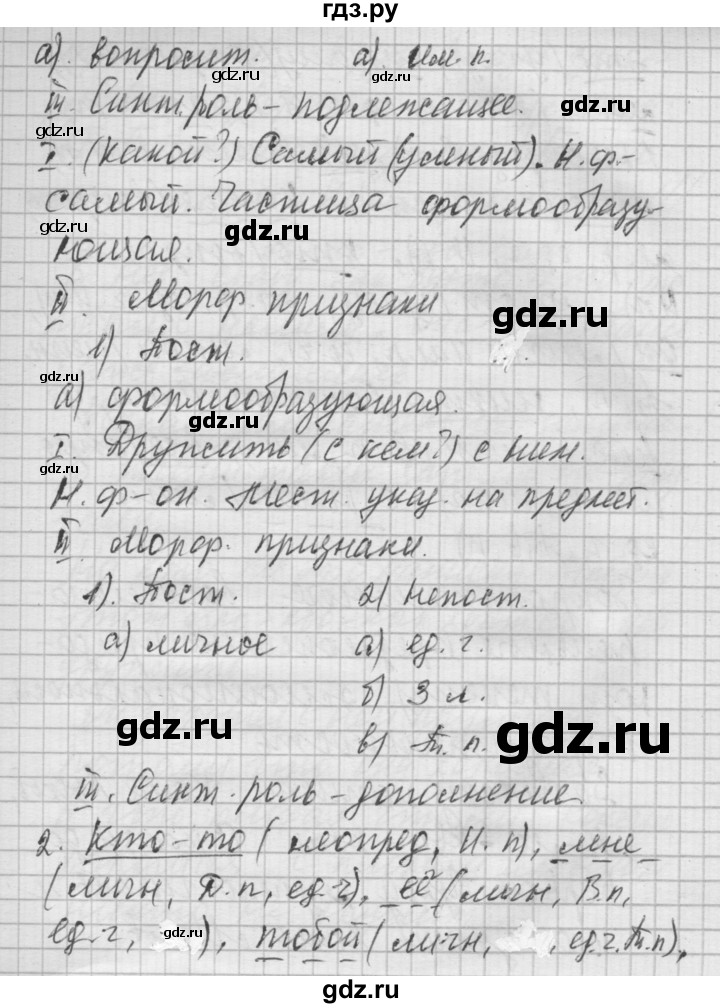 гдз.ру
а). вопросит. а). им. п.
III. Синт. роль – подлежащее.
I. (какой?) Самый (умный). Н. ф-
самый. Частица формообразу-
ющая.
II. Морф. признаки
1) Пост.
а) формообразующая.
I. Дружить (с кем?) с ним.
Н. ф-он. Мест. указ. на предмет.
II. Морф. признаки.
1). Пост. 2) Непост.
а) личное а) ед. ч.
б) 3 л.
в) Т. п.
III. Синт. роль – дополнение
2. Кто-то (неопред, И. п), мне
(личн, Д. п, ед. ч), её (личн, В.п,
ед. ч, ), тобой (личн, , ед. ч. Т. п),
gdz.ru